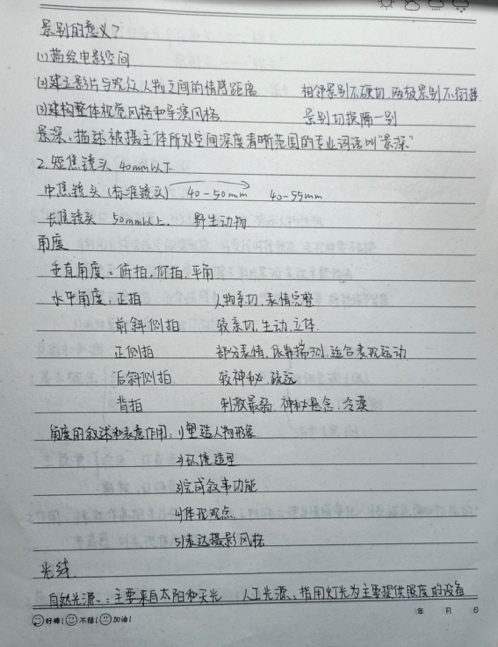 景别的意义？
(1)描绘电影空间
(2)建立影片与观众、人物之间的情感距离 相邻景别不硬切，两极景别不衔接
(3)建构整体视觉风格和导演风格 景别切换隔一别
景深：描述被摄主体所处空间深度清晰范围的专业词语叫“景深”
2.短焦镜头 40mm以下
中焦镜头（标准镜头） 40-50mm 40-55mm
长焦镜头 50mm以上 野生动物
角度
垂直角度：俯拍、仰拍、平角
水平角度：正拍 人物亲切、表情完整
前斜侧拍 较亲切、生动、立体
正侧拍 部分表情、揣测、适合表现运动
后斜侧拍 较神秘、疏远
背拍 刺激最弱、神秘悬念、冷漠
角度的叙述和表意作用：1)塑造人物形象
2)环境造型
3)完成叙事功能
4)体现观念
5)表达摄影风格
光线
自然光源：主要来自太阳和天光 人工光源：指用灯光为主要提供照度的设备
好棒！不错！加油！
年 月 日